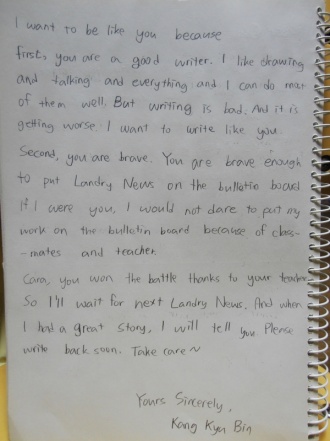 I want to be like you because
first, you are a good writer. I like drawing
and talking and everything and I can do most
of them well. But writing is bad. And it is
getting worse. I want to write like you.
Second, you are brave. You are brave enough
to put Landry News on the bulletin board
If I were you, I would not dare to put my
work on the bulletin board because of class-
-mates and teacher.
Cara, you won the battle thanks to your teacher
So I'll wait for next Landry News. And when
I had a great story, I will tell you Please
write back soon. Take care~
Yours Sincerely,
Kang Kyu Bin